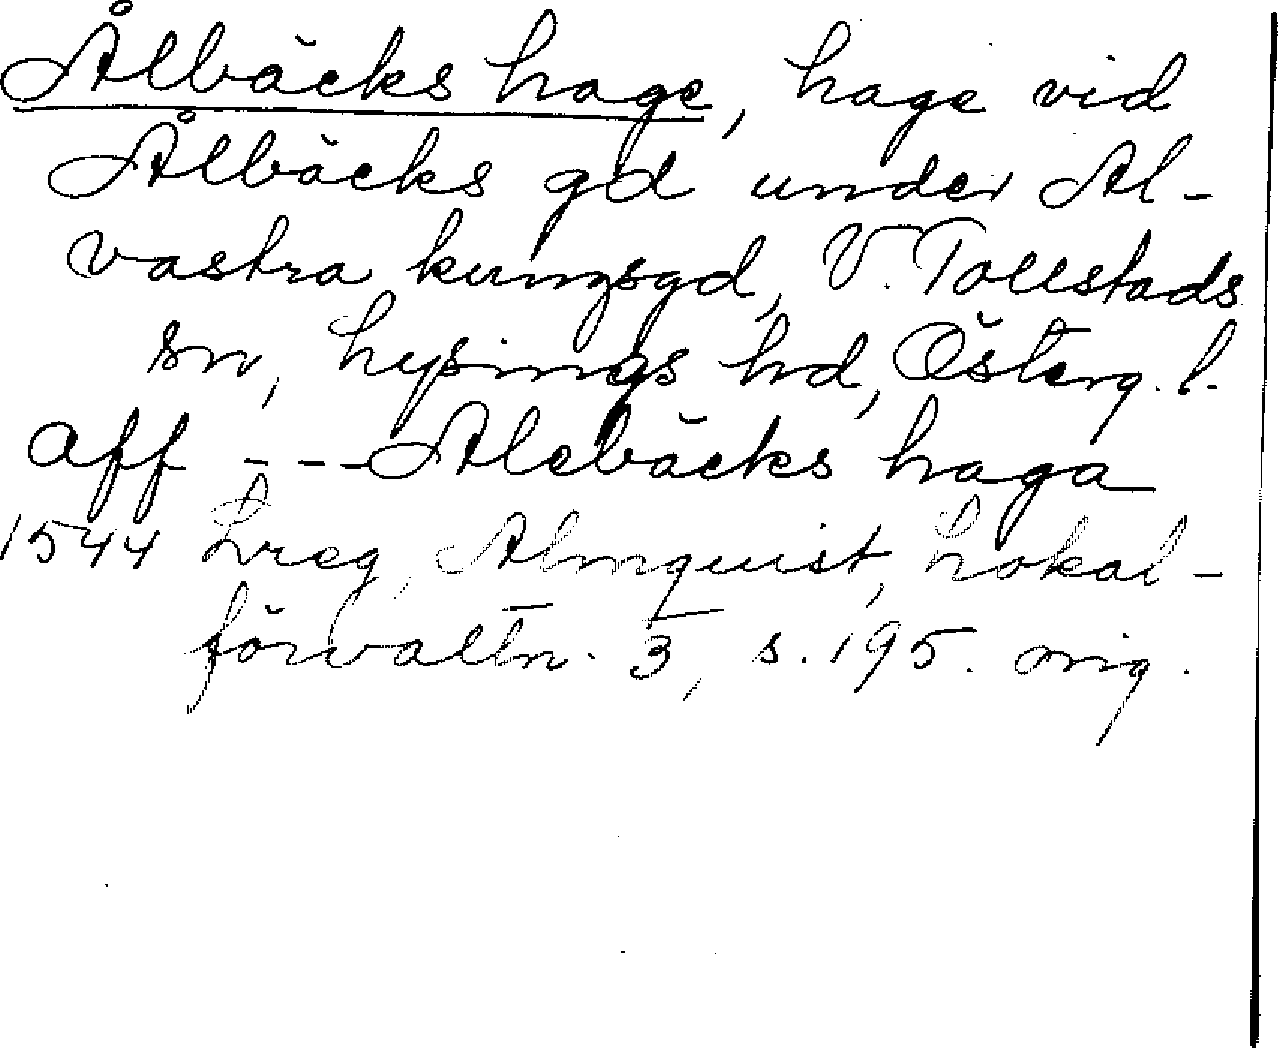 Ålbäcks hage, hage vid
Ålbäcks gd under Al-
vastra kungsgd, V. Tollstads
sn, Lysings hd, Österg. l.
aff --- Alebäcks haga
1544 Lreg, Almquist, Lokal-
förvaltn. 3, s. 195. orig.